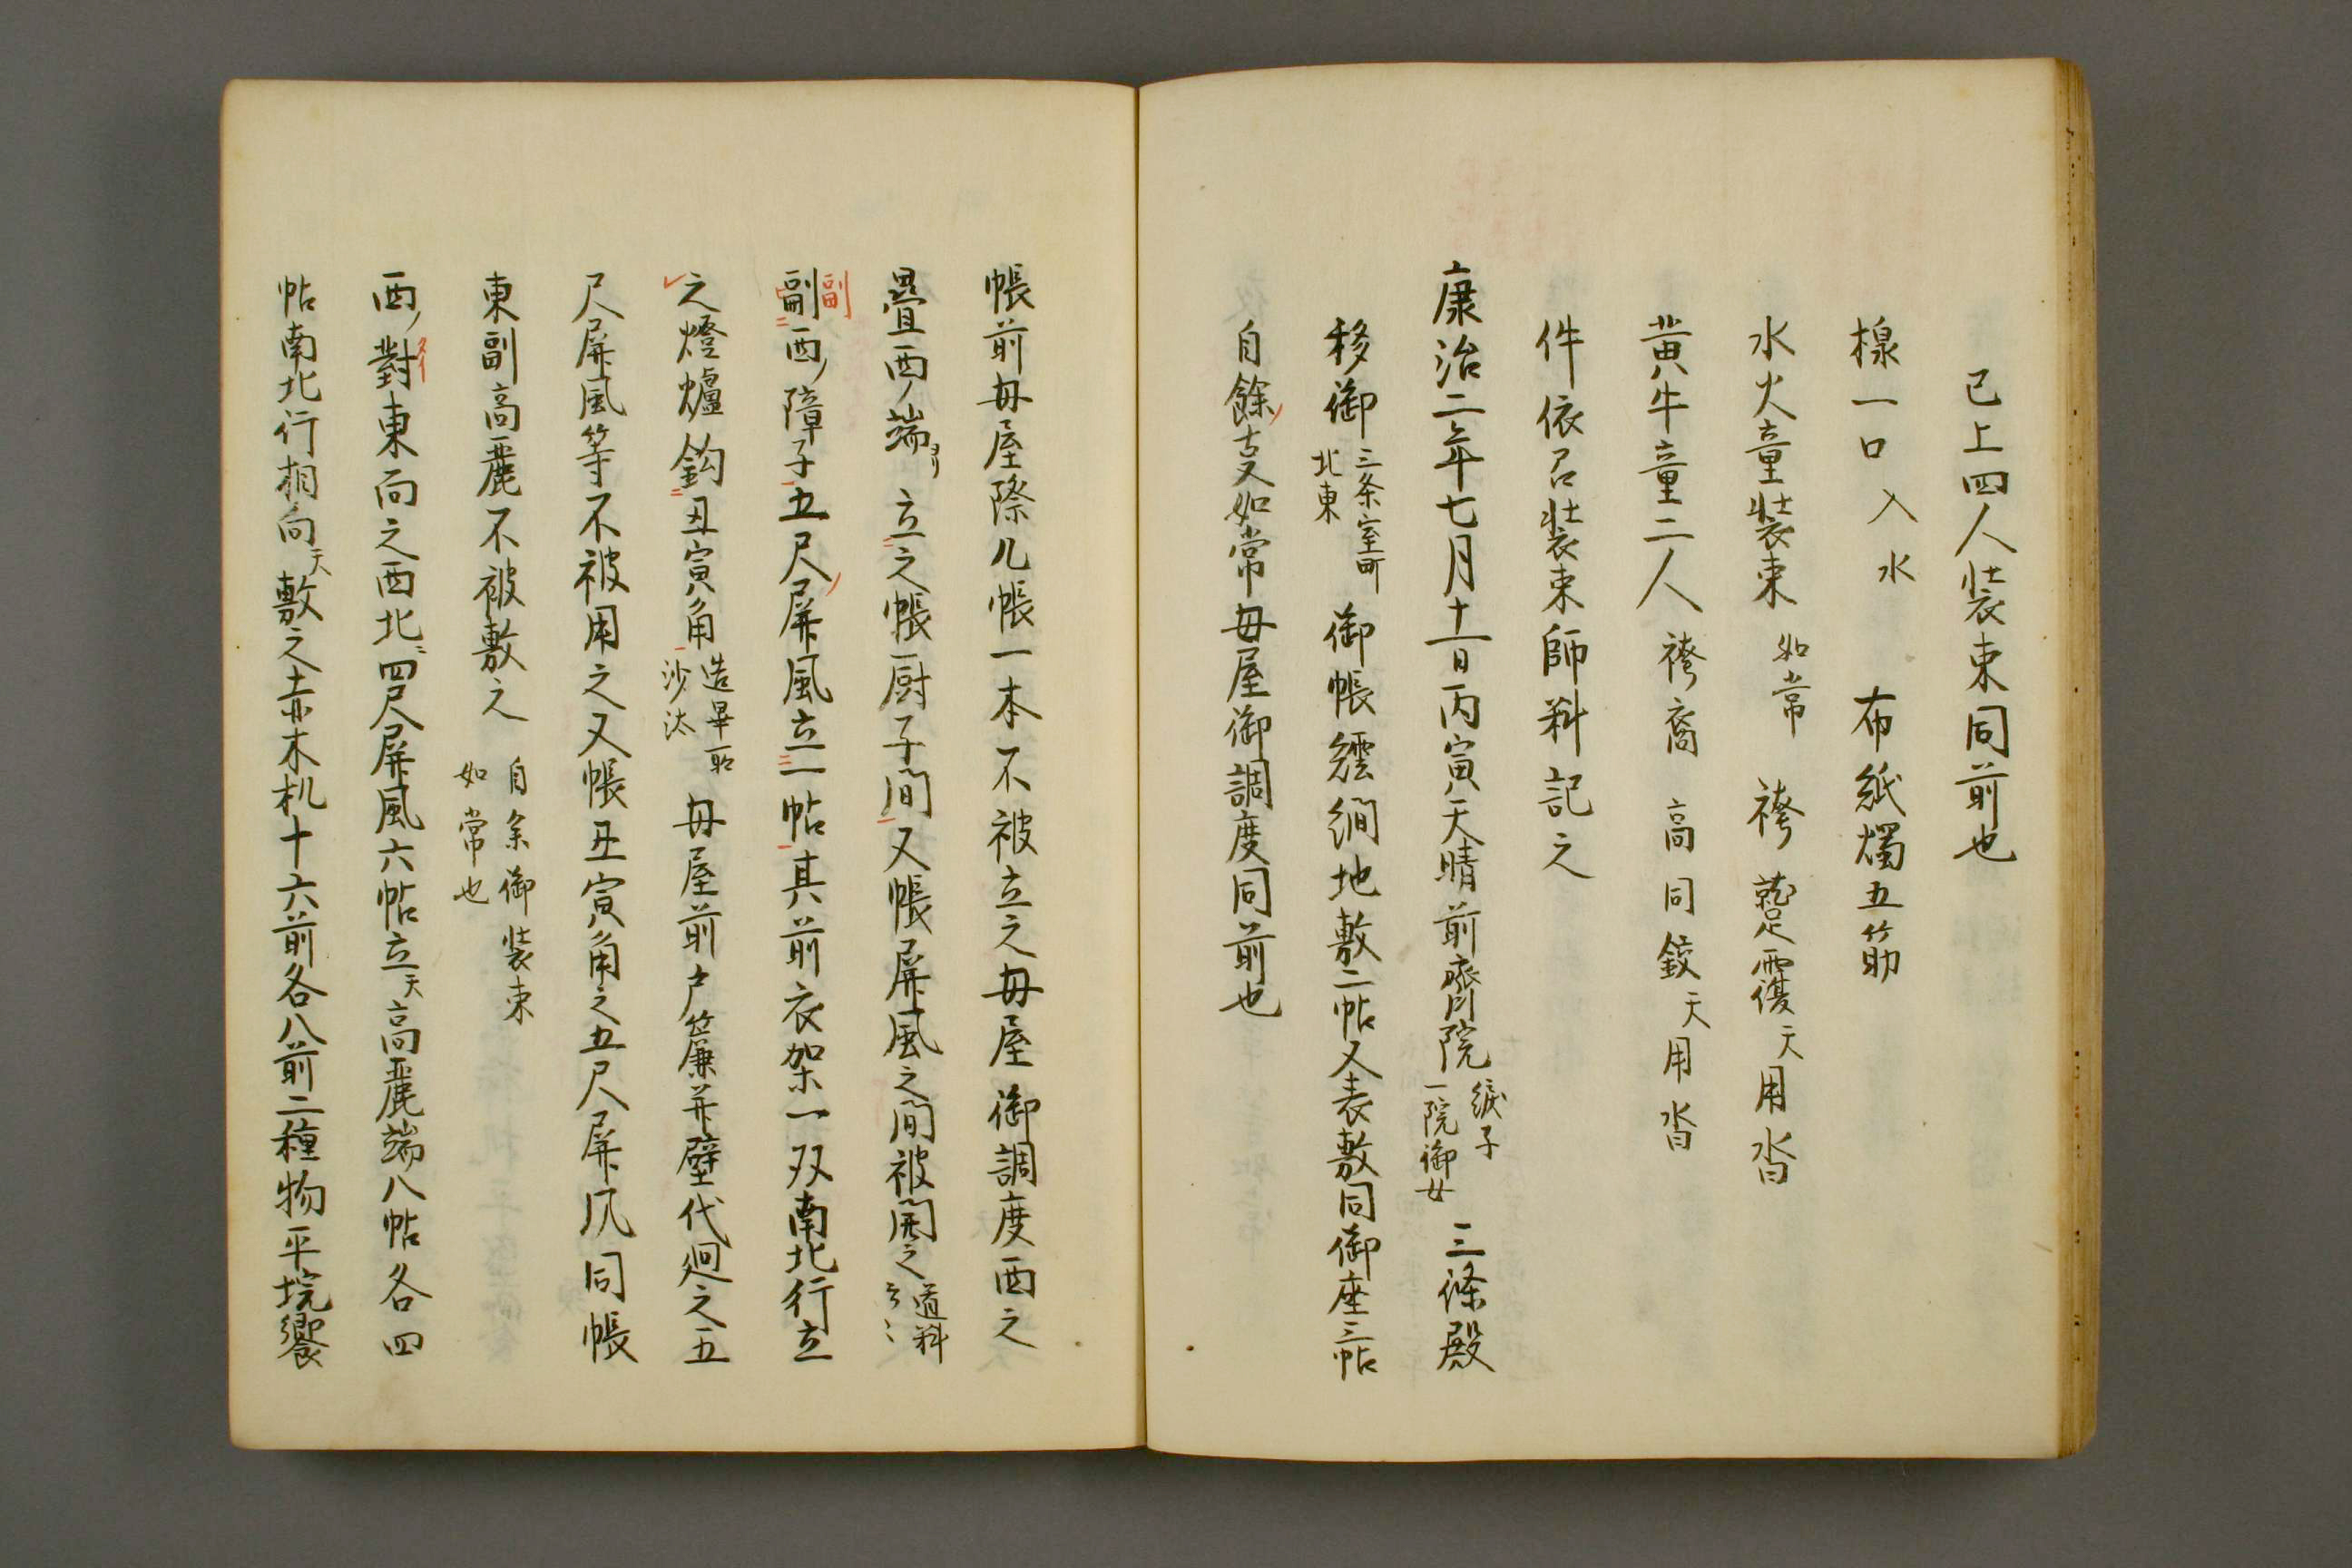 已上四人装束同前也
楾一口入水 布紙燭五筋
水火童装束如常 袴蹔足覆天用沓
黄牛童二人 袴裔高同鉸天用沓
件依召装束師料記之
康治二年七月十一日丙寅天晴前齊院 綾子 一院御女 三條殿
移御 三条室町 北東 御帳繧繝地敷二帖又表敷同御座三帖
自餘支如常毋屋御調度同前也
帳前毋屋際几帳一本不被立之毋屋御調度西之
疊西ノ端ヨリ立之帳厨子間又帳屏風之間被開之 道料 云〻
副副西ノ障子五尺屏風立一帖其前衣架一双南北行立
之燈爐鈎丑寅角 造畢所 沙汰 毋屋前戸簾并壁代廻之五
尺屏風等不被用之又帳丑寅角之五尺屏风同帳
東副高麗不被敷之 自余御装束 如常也
西ノ對東向之西北ニ四尺屏風六帖立天高麗端八帖各四
帖南北行相向天敷之赤木机十六前各八前二種物平垸饗